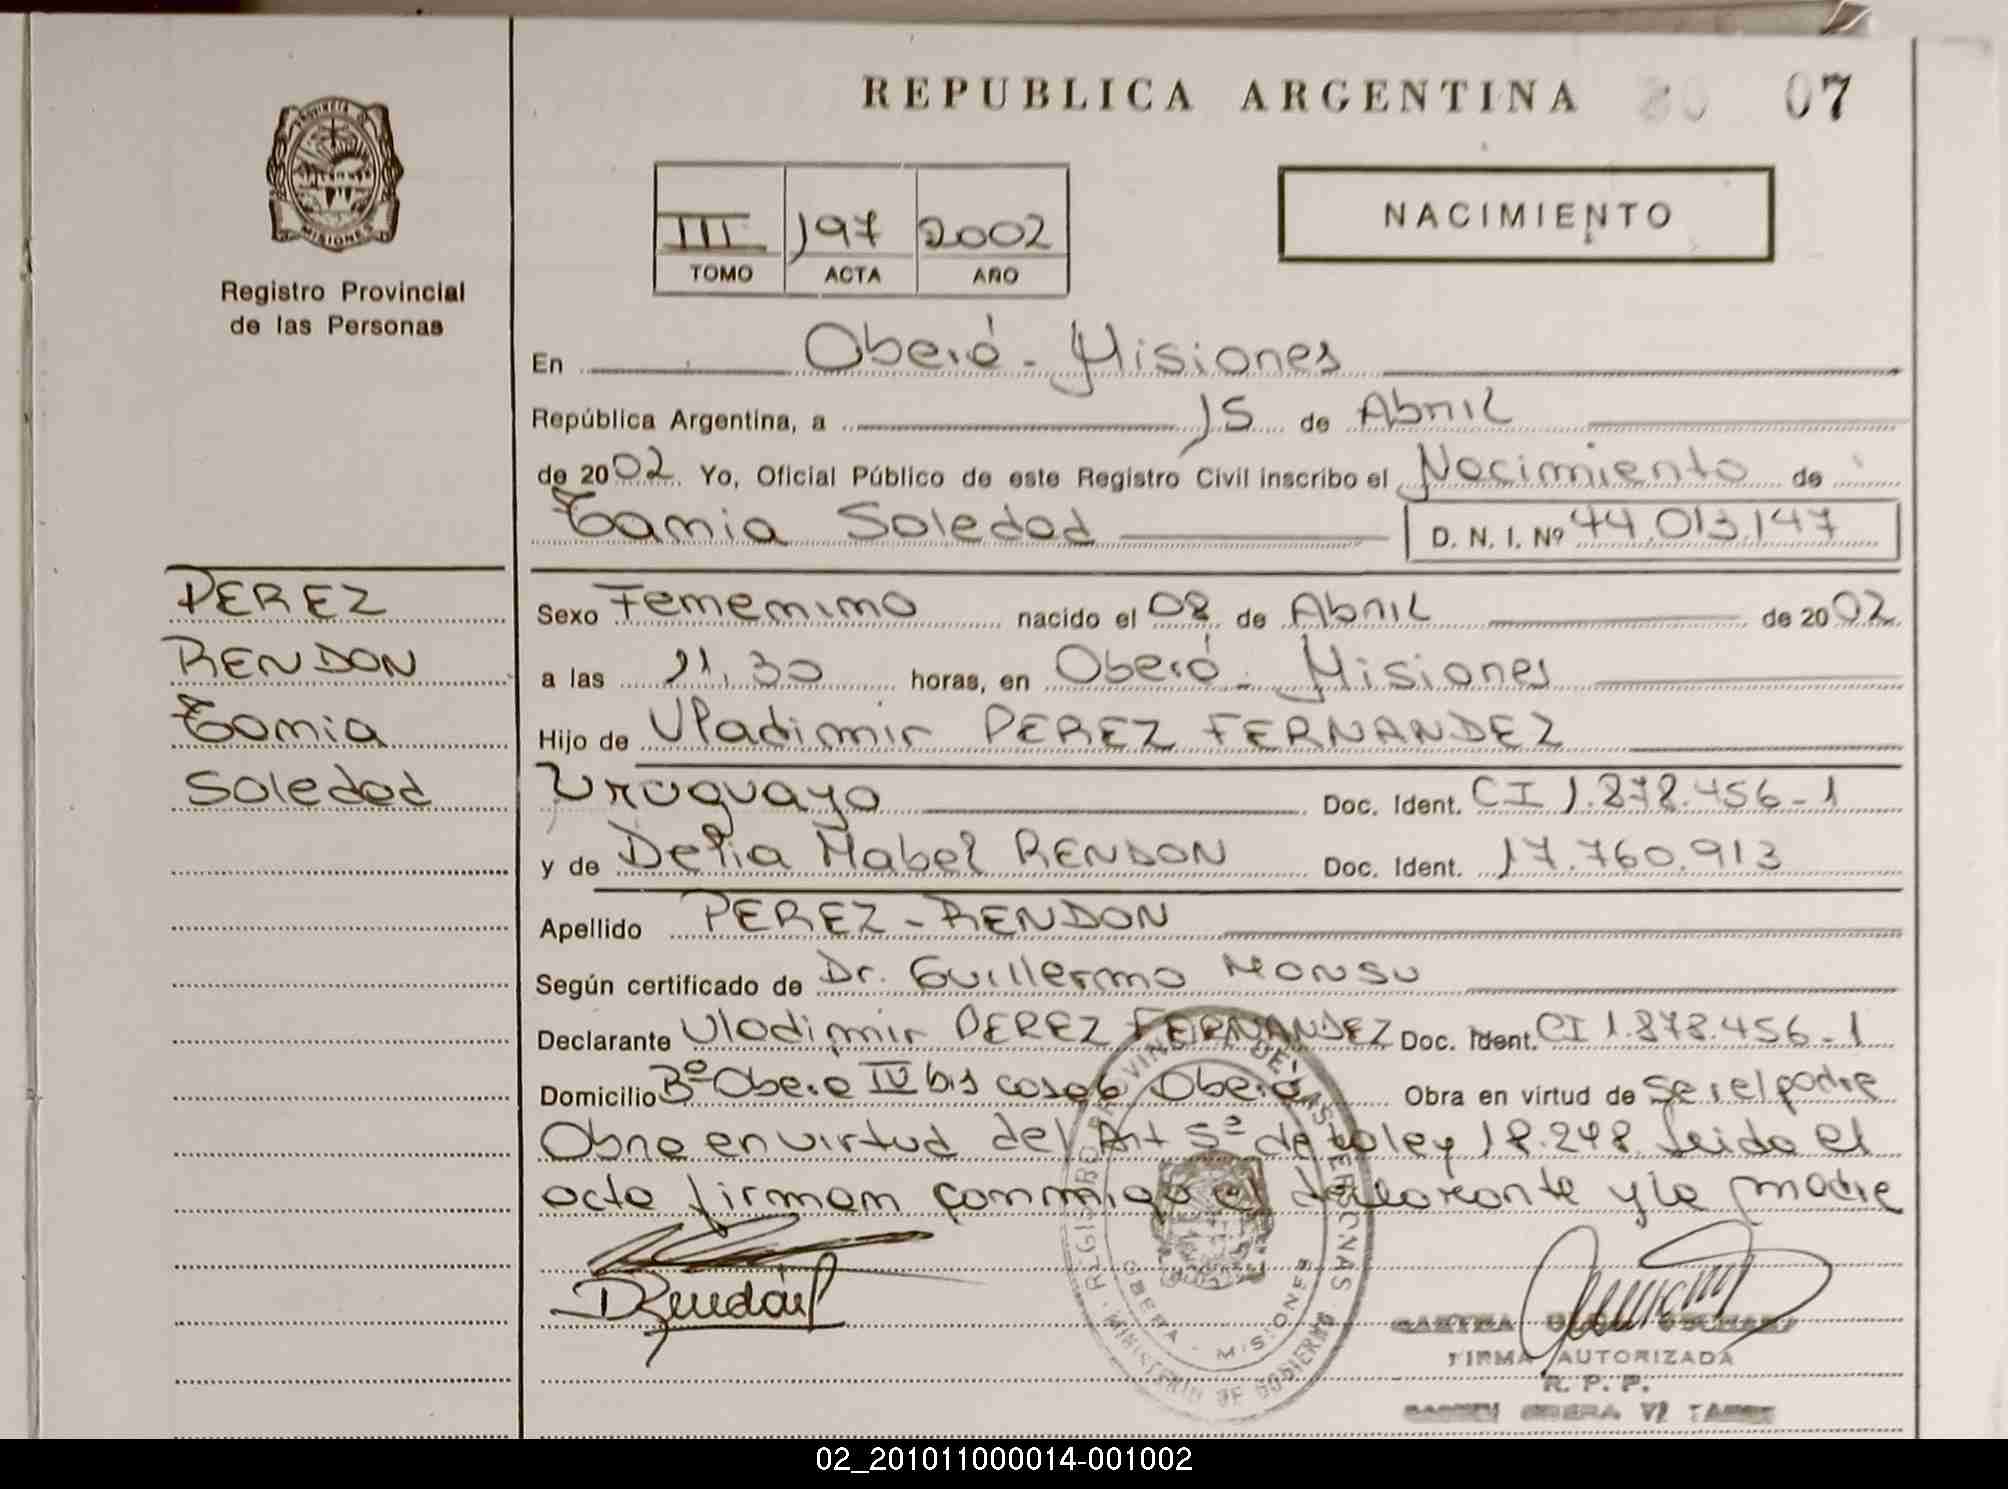 REPUBLICA ARGENTINA 07
PROVINCIA DE
MISIONES
Registro Provincial
de las Personas
NACIMIENTO
III 197 2002
TOMO ACTA AÑO
En Oberá - Misiones
República Argentina, a 15 de Abril
de 2002 Yo, Oficial Público de este Registro Civil inscribo el Nacimiento de
Tamia Soledad D. N. I. Nº 44.013.147
PEREZ
RENDON
Tamia
Soledad
Sexo Femenino nacido el 08 de Abril de 2002
a las 11,30 horas, en Oberá - Misiones
Hijo de Vladimir PEREZ FERNANDEZ
Uruguayo Doc. Ident. CI 1.878.456-1
y de Delia Mabel RENDON Doc. Ident. 17.760.913
Apellido PEREZ - RENDON
Según certificado de Dr. Guillermo MONSU
Declarante Vladimir PEREZ FERNANDEZ Doc. Ident. CI 1.878.456-1
Domicilio Bº Obera IV bis casa 6 Oberá Obra en virtud de ser el padre
Obra en virtud del Art 5º de la ley 18.248 leida el
acta firman conmigo el declarante y la madre
DRendón
REGISTRO PROVINCIAL DE LAS PERSONAS
OBERA - MISIONES
MINISTERIO DE GOBIERNO
FIRMA AUTORIZADA
R. P. P.
02_201011000014-001002